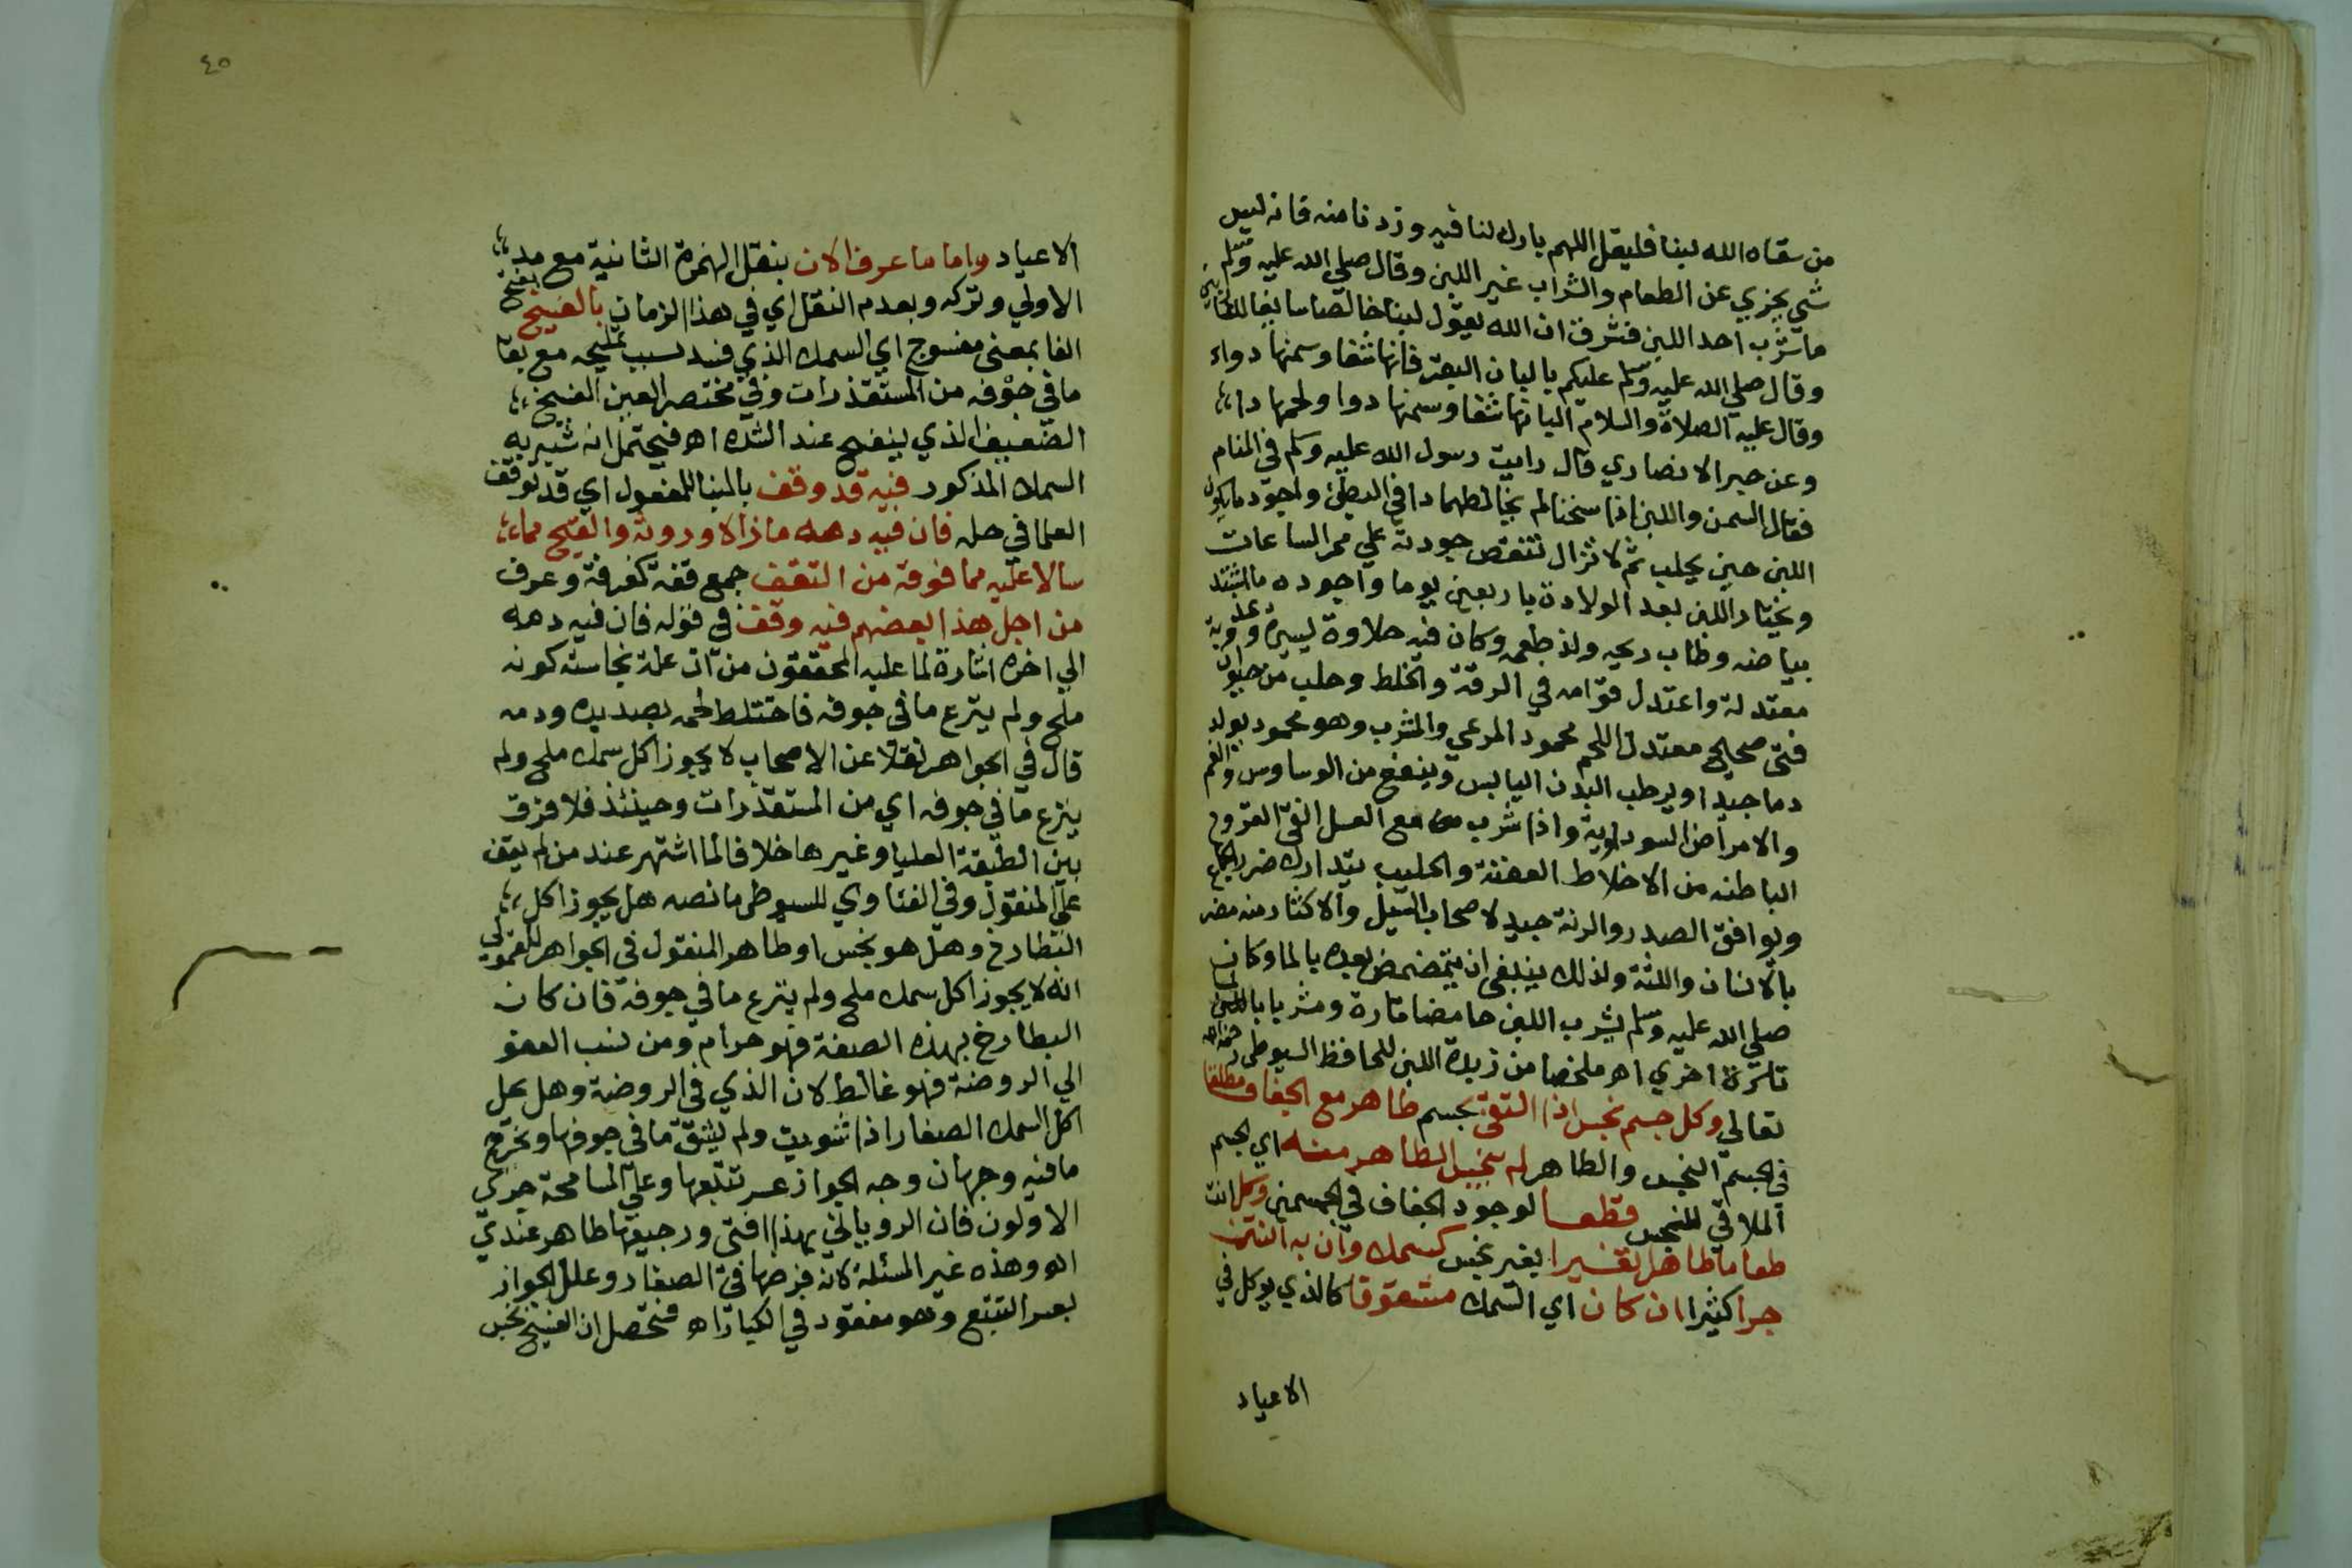 من سقاه الله لبنا فليقل اللهم بارك لنا فيه وزدنا منه فانه ليس
شي يجزي عن الطعام والشراب غير اللبن وقال صلي الله عليه وسلم
ما شرب احد اللبن فشرق ان الله يقول لبنا خالصا سايغا للشاربين
وقال صلي الله عليه وسلم عليكم بالبان البقر فانها شفا وسمنها دواء
وقال عليه الصلاة والسلام البانها شفا وسمنها دوا ولحمها دا
وعن الانصاري قال رايت رسول الله عليه وسلم في المنام
فقال السمن واللبن اذا سخنا لم يخالطهما دا في البطن واجود ما يكون
اللبن حين يحلب ثم لا تزال تنقص جودته علي ممر الساعات
ويختار اللبن بعد الولادة باربعين يوما واجوده ما اشتد
بياضه وطاب ريحه ولذ طعمه وكان فيه حلاوة يسيرة
معتدلة واعتدل قوامه في الرقة والغلط وحلب من حيوان
فتي صحيح معتدل اللحم محمود المرعي والمشرب وهو محمود يولد
دما جيدا ويرطب البدن اليابس وينفع من الوساوس والغم
والامراض السوداوية واذا شرب مع العسل انقي القروح
الباطنه من الاخلاط العفنة والحليب يتدارك ضرر الجماع
ويوافق الصدر والرئة جيد لاصحاب السل والاكثار منه مضر
بالاسنان واللثة ولذلك ينبغي ان يتمضمض بعده بالما وكان
صلي الله عليه وسلم يشرب اللبن حامضا تارة ومشربا باللبن
تارة اخري اهـ ملخصا من زبدة اللبن للحافظ السيوطي رحمه الله
تعالي وكل جسم نجس اذا التقي بجسم طاهر مع الجفاف مطلقا
في الجسم النجس والطاهر لم ينجس الطاهر منه اي الجسم
الملاقي للنجس قطعا لوجود الجفاف في الجسمين وكل انت
طعاما طاهرا تغيرا بغير نجس كسمك وان به النتن
جرا كثيرا ان كان اي السمك مشقوقا كالذي يوكل في
الاعياد
٤٥
الاعياد واما ما عرف الان بنقل الهمزة الثانية مع مد
الاولي وتركه وبعدم النقل اي في هذا الزمان بالفسيخ بفتح
الفا بمعني مفسوخ اي السمك الذي فسد بسبب تمليحه مع بقا
ما في جوفه من المستقذرات وفي مختصر العين الفسيخ
الضعيف الذي ينفسخ عند الشده اهـ فيحتمل انه شبه به
السمك المذكور فيه قد وقف بالبنا للمفعول اي قد توقف
العلما في حله فان فيه دمه ما زالا وروثه والقيح مما
سالا عليه مما فوقه من القفف جمع قفة كغرفة وغرف
من اجل هذا بعضهم فيه وقف في قوله فان فيه دمه
الي اخره اشارة لما عليه المحققون من ان علة نجاسته كونه
ملح ولم ينزع ما في جوفه فاختلط لحمه بصديده ودمه
قال في الجواهر نقلا عن الاصحاب لا يجوز اكل سمك ملح ولم
ينزع ما في جوفه اي من المستقذرات وحينئذ فلا فرق
بين الطبقة العليا وغيرها خلافا لما اشتهر عند من لم يقف
علي المنقول وفي الفتاوي للسيوطي ما نصه هل يجوز اكل
البطارخ وهل هو نجس او طاهر المنقول في الجواهر للقمولي
انه لا يجوز اكل سمك ملح ولم ينزع ما في جوفه فان كان
البطارخ بهذه الصفة فهو حرام ومن نسب العفو
الي الروضة فهو غالط لان الذي في الروضة وهل يحل
اكل السمك الصغار اذا شويت ولم يشق ما في جوفها ويخرج
ما فيه وجهان وجه الجواز عسر تتبعها وعلي المسامحة جري
الاولون فان الروياني بهذا افتي ورجيعها طاهر عندي
اهـ وهذه غير المسئلة لانه فرضها في الصغار وعلل الجواز
بعسر التتبع وهو مفقود في الكبار اهـ فتحصل ان الفسيخ نجس